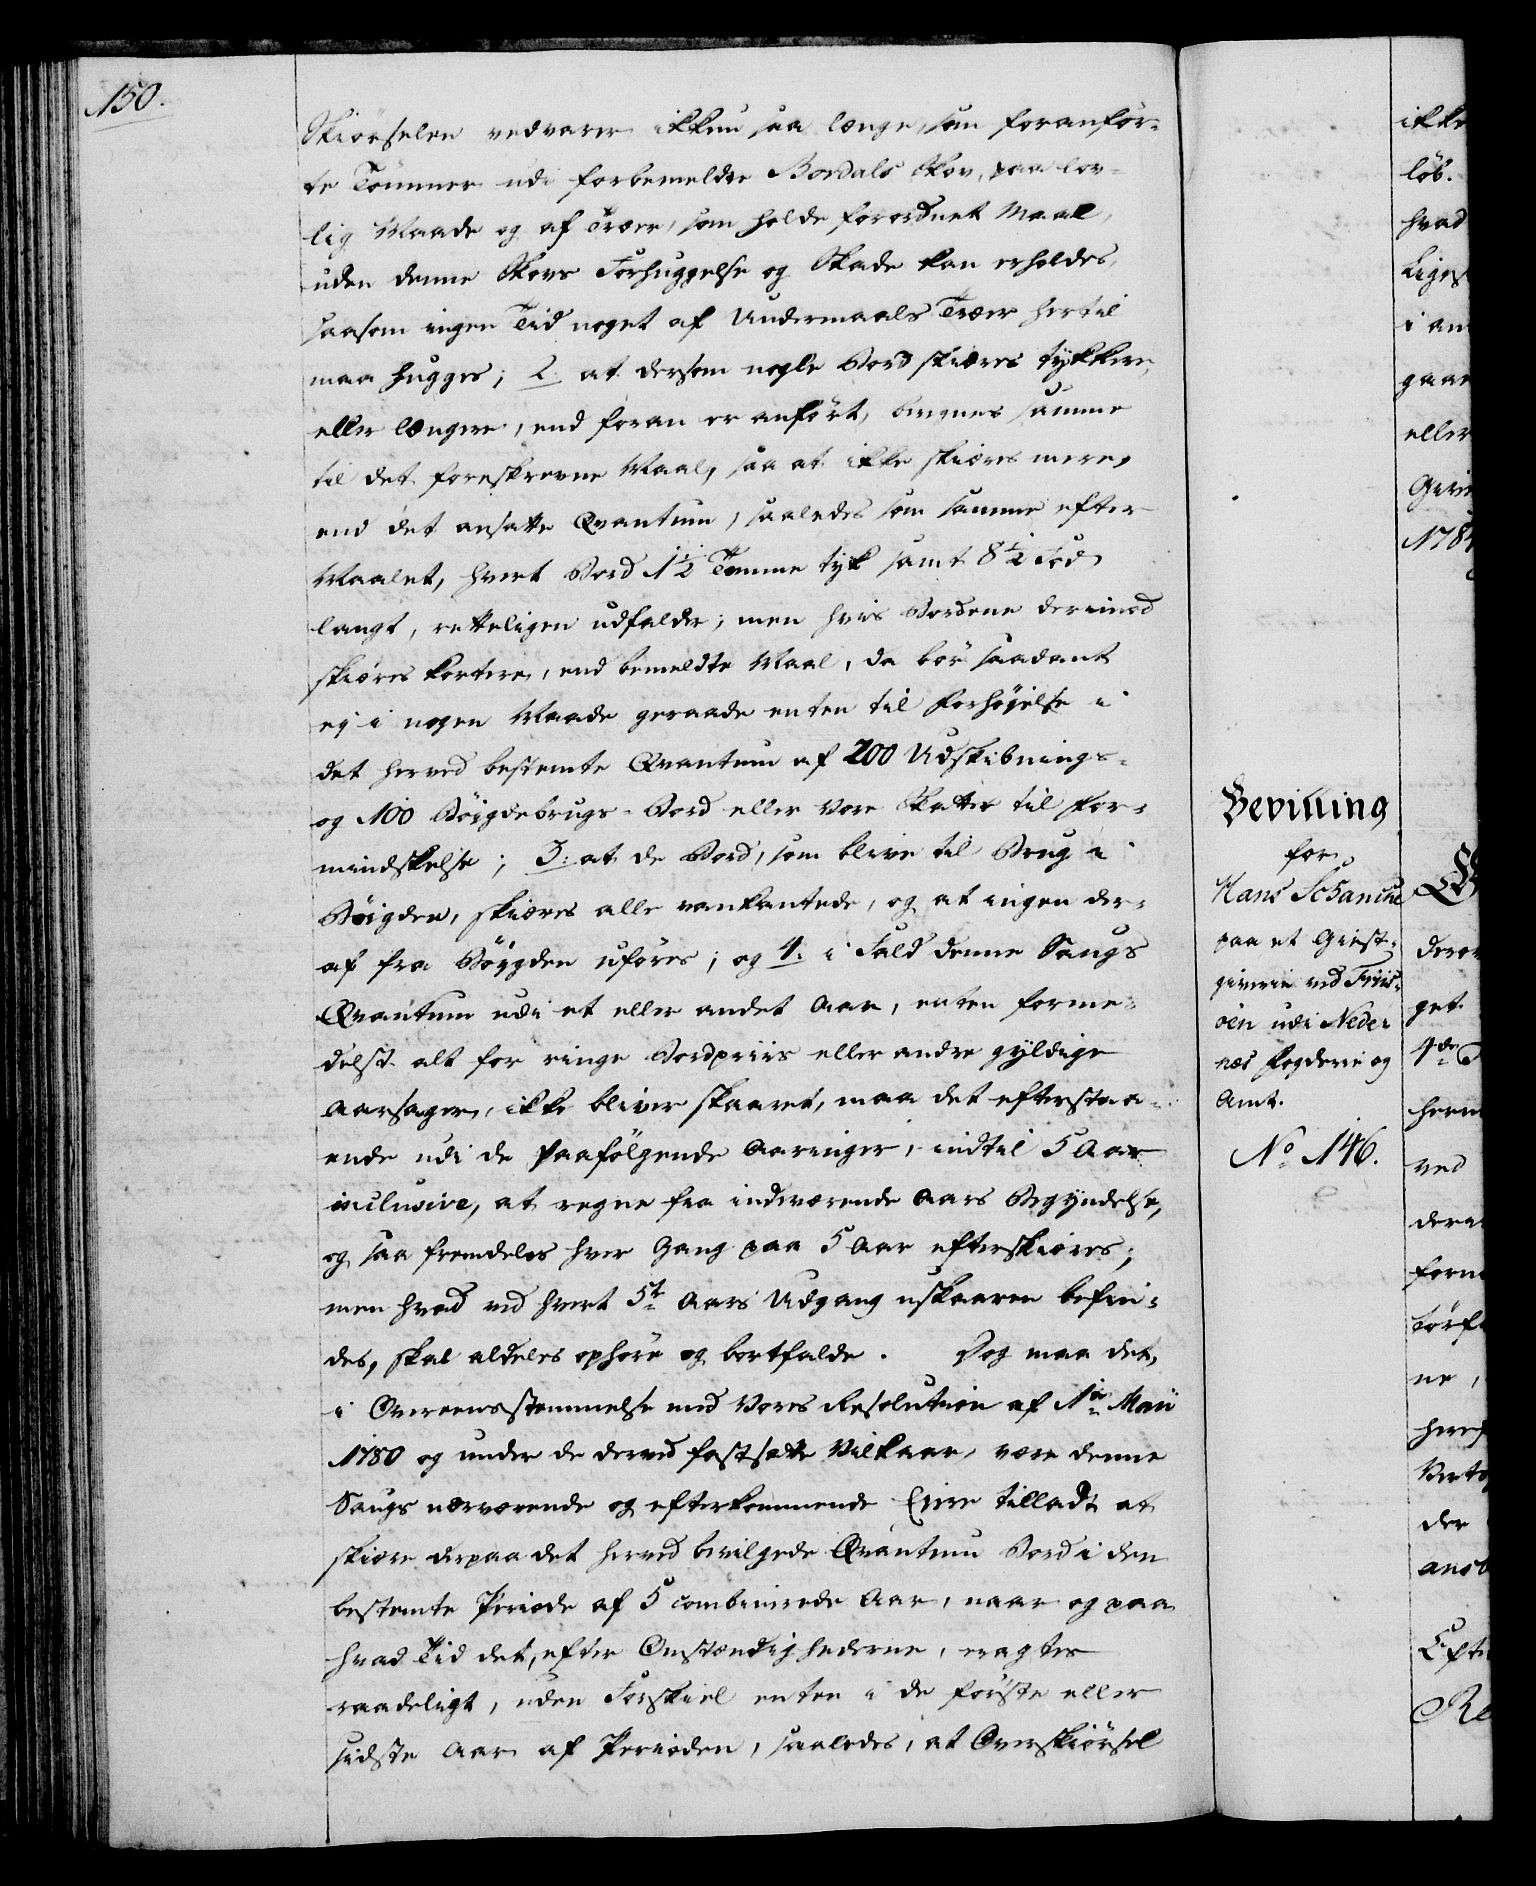 150.
Skiørselen vedvarer ikkun saa længe, som foranfør-
te Tømmer udi forbemeldte Bordals Skov, paa lov-
lig Maade og af Træer, som holde forordnet Maal,
uden denne Skovs Forhuggelse og Skade kan erholdes,
saasom ingen Tid noget af Undermaals Træer hertil
maa hugges; 2. at dersom nogle Bord skiæres tykkere
eller længere, end foran er anført, beregnes samme
til det foreskrevne Maal, saa at ikke skiæres mere,
end det ansatte Qvantum, saaledes som samme efter
Maalet, hvert Bord 1½ Tomme tyk samt 8½ Fod
langt, retteligen udfalder; men hvis Bordene derimod
skiæres kortere, end bemeldte Maal, da bør saadant
ej i nogen Maade geraade enten til Forhøjelse i
det herved bestemte Qvantum af 200 Udskibnings-
og 100 Bøigdebrugs-Bord eller Vore Skatter til For-
mindskelse; 3. at de Bord, som blive til Brug i
Bøigden, skiæres alle vankantede, og at ingen der-
af fra Bøygden uføres; og 4. i Fald denne Saugs
Qvantum udi et eller andet Aar, enten forme-
delst alt for ringe Bordpriis eller andre gyldige
Aarsager, ikke bliver skaaret, maa det efterstaa-
ende udi de paafølgende Aaringer, indtil 5 Aar
inclusive, at regne fra indeværende Aars Begyndelse,
og saa fremdeles hver Gang paa 5 Aar efterskiæres;
men hvad ved hvert 5te Aars Udgang uskaaren befin-
des, skal aldeles ophøre og bortfalde. Dog maa det,
i Overeensstemmelse med Vores Resolution af 1te Maii
1780 og under de derved fastsatte Vilkaar, være denne
Saugs nærværende og efterkommende Eiere tilladt at
skiære derpaa det herved bevilgede Qvantum Bord i den
bestemte Periode af 5 combinerede Aar, naar og paa
hvad Tid det, efter Omstændighederne, eragtes
raadeligt, uden Forskiel enten i de første eller
sidste Aar af Perioden, saaledes, at Overskiørsel
Bevilling
for
Hans Schanche
paa et Giæst-
giverie ved Friis-
øen udi Neder
næs Fogderie og
Amt.
No 146.
ikke
løb.
hvad
Liges
i an
gaar
eller
Give
178
deror
get
1de
herm
ved
dera
forn
børf
ne,
heref
der
Efte